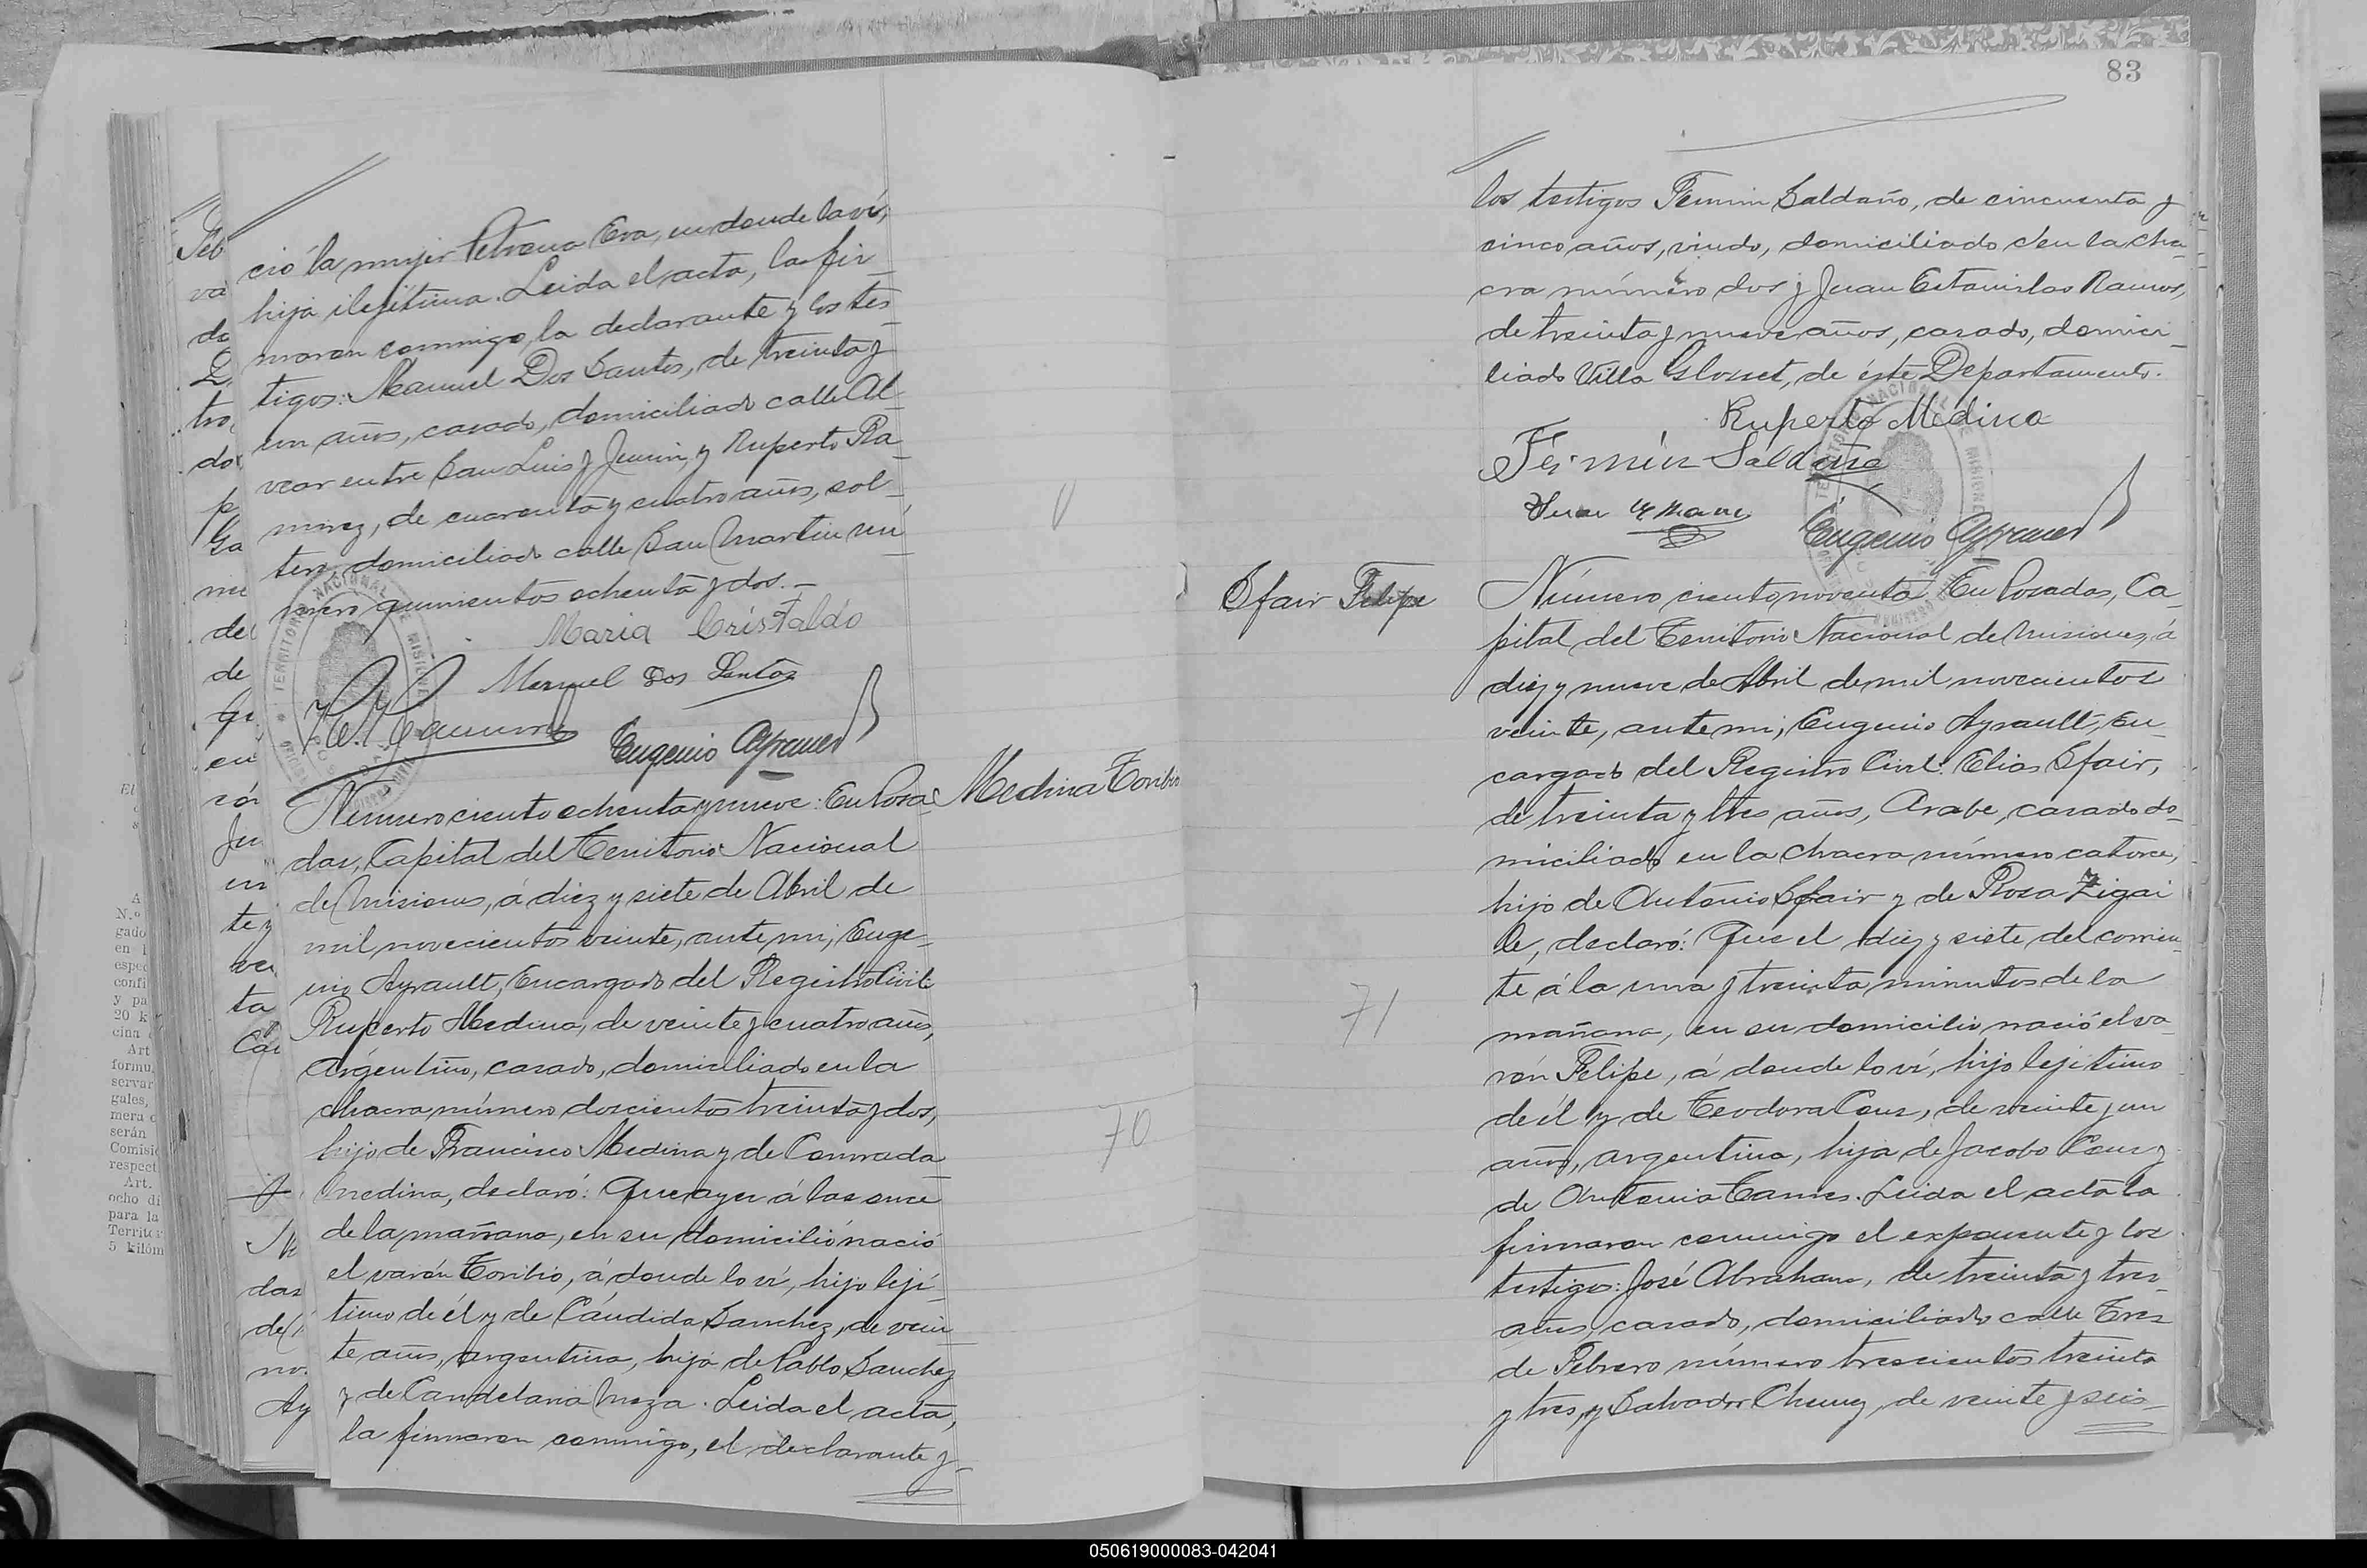 ció la mujer Petrona Eva, en donde la ví,
hija ilejítima. Leida el acta, la fir
maron conmigo, la declarante y los tes
tigos: Manuel Dos Santos, de treinta y
un años, casado, domiciliado calle Al
vear entre San Luis y Junin, y Ruperto Ra
mirez, de cuarenta y cuatro años, sol
tero, domiciliado calle San Martin nú
mero quinientos ochenta y dos.-
Maria Cristaldo
Manuel Dos Santos
Eugenio Ayrault
Medina Toribio
Número ciento ochenta y nueve: En Posa
das, Capital del Territorio Nacional
de Misiones, á diez y siete de Abril de
mil novecientos veinte, ante mi, Euge
nio Ayrault, Encargado del Registro Civil:
Ruperto Medina, de veinte y cuatro años,
argentino, casado, domiciliado en la
chacra número doscientos treinta y dos,
hijo de Francisco Medina y de Conrada
Medina, declaró: Que ayer á las once
de la mañana, en su domicilio nació
el varón Toribio, á donde lo ví, hijo leji
timo de él y de Cándida Sanchez, de vein
te años, argentina, hija de Pablo Sanchez
y de Candelaria Meza. Leida el acta,
la firmaron conmigo, el declarante y
70
83
los testigos Fermin Saldaño, de cincuenta y
cinco años, viudo, domiciliado en la cha
cra número dos y Juan Estanislao Ramos,
de treinta y nueve años, casado, domici
liado Villa Blosset, de éste Departamento.
Ruperto Medina
Fermín Saldaña
Eugenio Ayrault
Sfair Felipe
Número ciento noventa: En Posadas, Ca
pital del Territorio Nacional de Misiones, á
diez y nueve de Abril de mil novecientos
veinte, ante mi, Eugenio Ayrault, En
cargado del Registro Civil: Elias Sfair,
de treinta y tres años, Arabe, casado do
miciliado en la chacra número catorce,
hijo de Antonio Sfair y de Rosa Zigai
le, declaró: Que el diez y siete del corrien
te á la una y treinta minutos de la
mañana, en su domicilio nació el va
rón Felipe, á donde lo ví, hijo lejitimo
de él y de Teodora Caus, de veinte y un
años, argentina, hija de Jacobo Caus y
de Antonia Tannes. Leida el acta la
firmaron conmigo el exponente y los
testigos: José Abraham, de treinta y tres
años, casado, domiciliado calle Tres
de Febrero número trescientos treinta
y tres, y Salvador Chemes, de veinte y seis
71
050619000083-042041